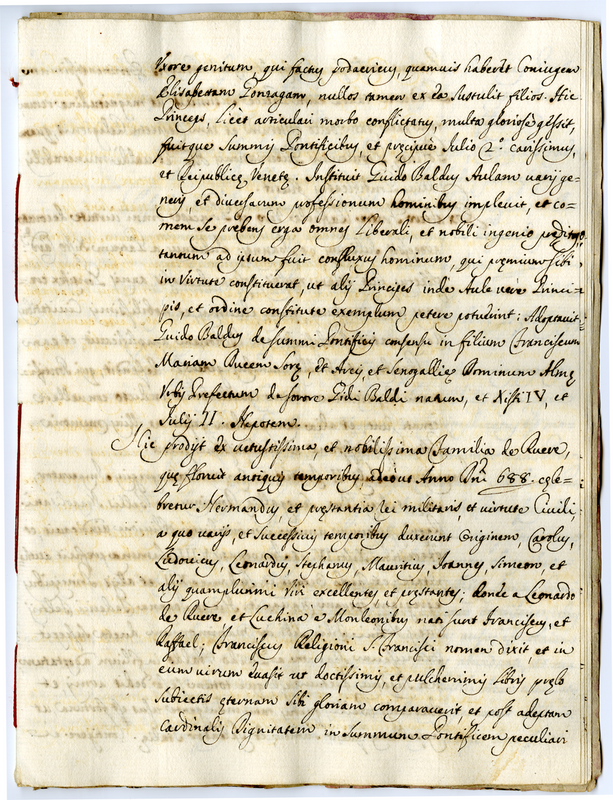 Uxore genitum qui factus podagricus, quamuis haberet Coniugem
Elisabettam Gonzagam, nullos tamen ex ea sustulit filios. Hic
Princeps, licet articulari morbo conflictatus, multa gloriosè gessit,
fuitque Summis Pontificibus, et pręcipuè Julio 2.º carissimus,
et Reipublicę Venetę. Instituit Guido Baldus Aulam varij ge=
neris, et diversarum professionum hominibus implevit, et co=
mem se prebens erga omnes liberali, et nobili ingenio preditos,
tantum ad ipsum fuit confluxus hominum, qui pręmium sibi
in Virtute constituerat, ut alij Principes inde Aulę verę Princi=
pis, et ordine constitutę exemplum petere potuerint: Adoptavit
Guido Baldus de summi Pontificis consensu in filium Franciscum
Mariam Ducem Sorę, et Arcis, et Senogallię Dominum Almę
Urbis Prefectum de sorore Gidi Baldi natum, et Xisti IV, et
Julij II. Nepotem.
Hic prodijt ex vetustissima, et nobilissima Familia de Ruere,
quę floruit antiquis temporibus, adeò ut Anno Dni 688. cęle=
bretur Hermandus, et pręstantia rei militaris, et virtute Civili
a quo varijs, et successivis temporibus duxerunt Originem, Carolus,
Ludovicus, Leonardus, Stephanus, Mauritius, Joannes, Simeon, et
alij quamplurimi viri excellentes et pręstantes; donec a Leonardo
de Ruere et Luchina è Monleonibus nati sunt Franciscus, et
Raffael; Franciscus Religioni S. Francisci nomen dixit, et in
eum virum evasit ut doctissimis, et pulcherrimis libris pręlo
subiectis ęternam sibi gloriam comparaverit, et post adeptam
Cardinalis Dignitatem in summum Pontificem peculiari